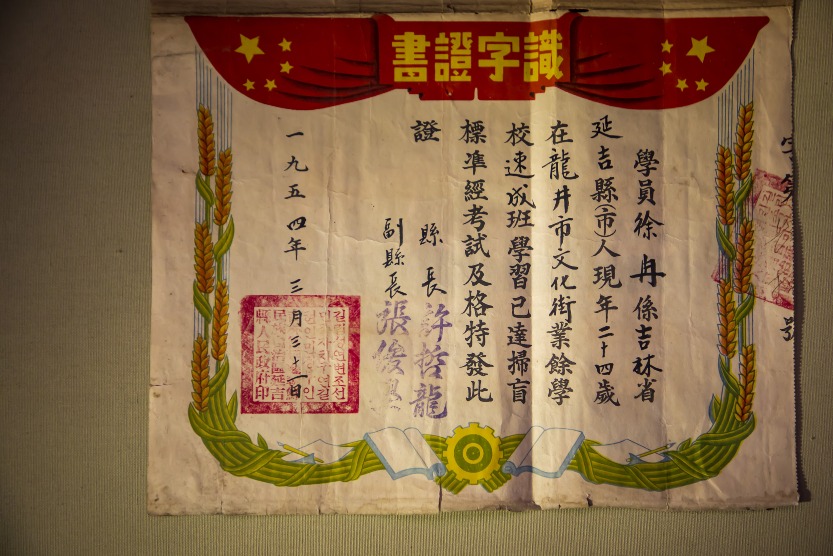 識字證書
學員徐冉係吉林省
延吉縣(市)人現年二十四歲
在龍井市文化街業餘學
校速成班學習已達掃盲
標準經考試及格特發此
證
縣長 許哲龍
副縣長 張俊
一九五四年三月三十一日
縣人民政府印
號